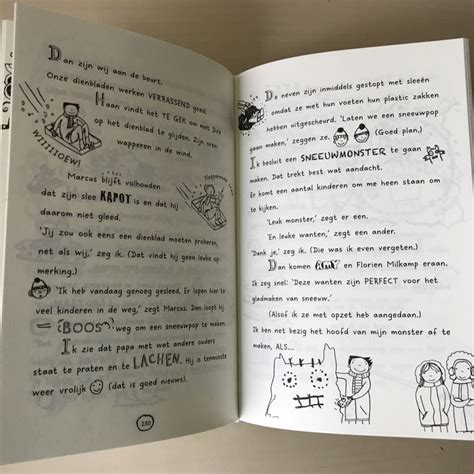 Dan zijn wij aan de beurt.
Onze dienbladen werken VERRASSEND goed.
Haan vindt het TE GER om met Dirk
op het dienblad te glijden. Zijn oren
wapperen in de wind.
WIIIIIOEW!
Flapperende
Marcus blijft volhouden
dat zijn slee KAPOT is en dat hij
daarom niet gleed.
‘Jij zou ook eens een dienblad moeten proberen,
net als wij,’ zeg ik. (Dat vindt hij geen leuke op-
merking.)
‘Ik heb vandaag genoeg gesleed. Er lopen hier te
veel kinderen in de weg,’ zegt Marcus. Dan loopt hij
BOOS weg om een sneeuwpop te maken.
Ik zie dat papa met wat andere ouders
staat te praten en te LACHEN. Hij is tenminste
weer vrolijk (dat is goed nieuws).
130
De neven zijn inmiddels gestopt met sleeën
omdat ze met hun voeten hun plastic zakken
hebben uitgescheurd. ‘Laten we een sneeuwpop
gaan maken,’ zeggen ze. (Goed plan.)
Ik besluit een SNEEUWMONSTER te gaan
maken. Dat trekt best wat aandacht.
Er komt een aantal kinderen om me heen staan om
te kijken.
‘Leuk monster,’ zegt er een.
‘En leuke wanten,’ zegt een ander.
‘Dank je,’ zeg ik. (Die was ik even vergeten.)
Dan komen AMY en Florien Milkamp eraan.
Ik zeg snel: ‘Deze wanten zijn PERFECT voor het
gladmaken van sneeuw.’
(Alsof ik ze met opzet heb aangedaan.)
Ik ben net bezig het hoofd van mijn monster af te
maken, ALS...